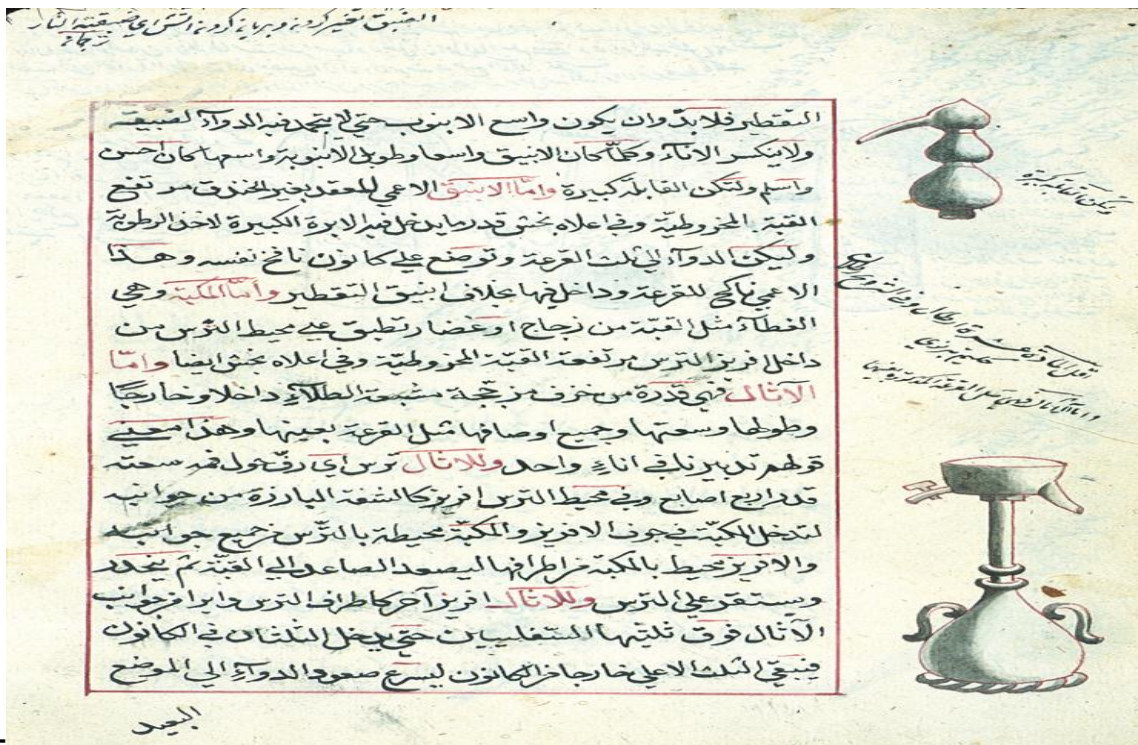 التقطير فلا بدّ وان يكون واسع الانبوب حتي لا يتجمد فيه الدوآء لضيقه
ولا ينكسر الانآء وكلّما كان الانبيق واسعا وطويل الانبوبة واسعها كان احسن
واسلم ولتكن القابلة كبيرة وامّا الانبيق الاعمي للعقد بغير الخزف مرتفع
القبة بالمخروطيّة وفي اعلاه بخش قدر ما يدخل فيه الابرة الكبيرة لاخذ الرطوبة
وليكن الدوآء الي ثلث القرعة وتوضع علي كانون نافخ نفسه وهذا
الاعمي ناكح للقرعة وداخل فيها بخلاف انبيق التقطير وامّا المكبّة وهي
الغطآء مثل القبّة من زجاج او غضار تطبق علي محيط الترس من
داخل افريز الترس مرتفعة القبّة المخروطيّة وفي اعلاه بخش ايضا وامّا
الآثال فهي قدرة من خزف مزججة مشبعة الطلآء داخلا وخارجًا
وطولها وسعتها وجميع اوصافها مثل القرعة بعينها وهذا معني
قولهم تدبيرنا في انآءٍ واحد وللاثال ترس اي رفّ حول فمه سعته
قدر اربع اصابع وفي محيط الترس افريز كالشفة البارزة من جوانبه
لتدخل المكبّة في جوف الافريز والمكبّة محيطة بالترّس من جميع جوانبه
والافريز محيط بالمكبّة من اطرافها ليصعد الصاعد الي القبّة ثم ينحدر
ويستقر علي الترس وللاثال افريز آخر كاطراف الترس دايرا في جوانب
الآثال فوق ثلثيها السّفليين حتي يدخل الثلثان في الكانون
فيبقي الثلث الاعلي خارجا من الكانون ليسرع صعود الدوآء الي الموضع
البعيد
ولتكن القابلة كبيرة